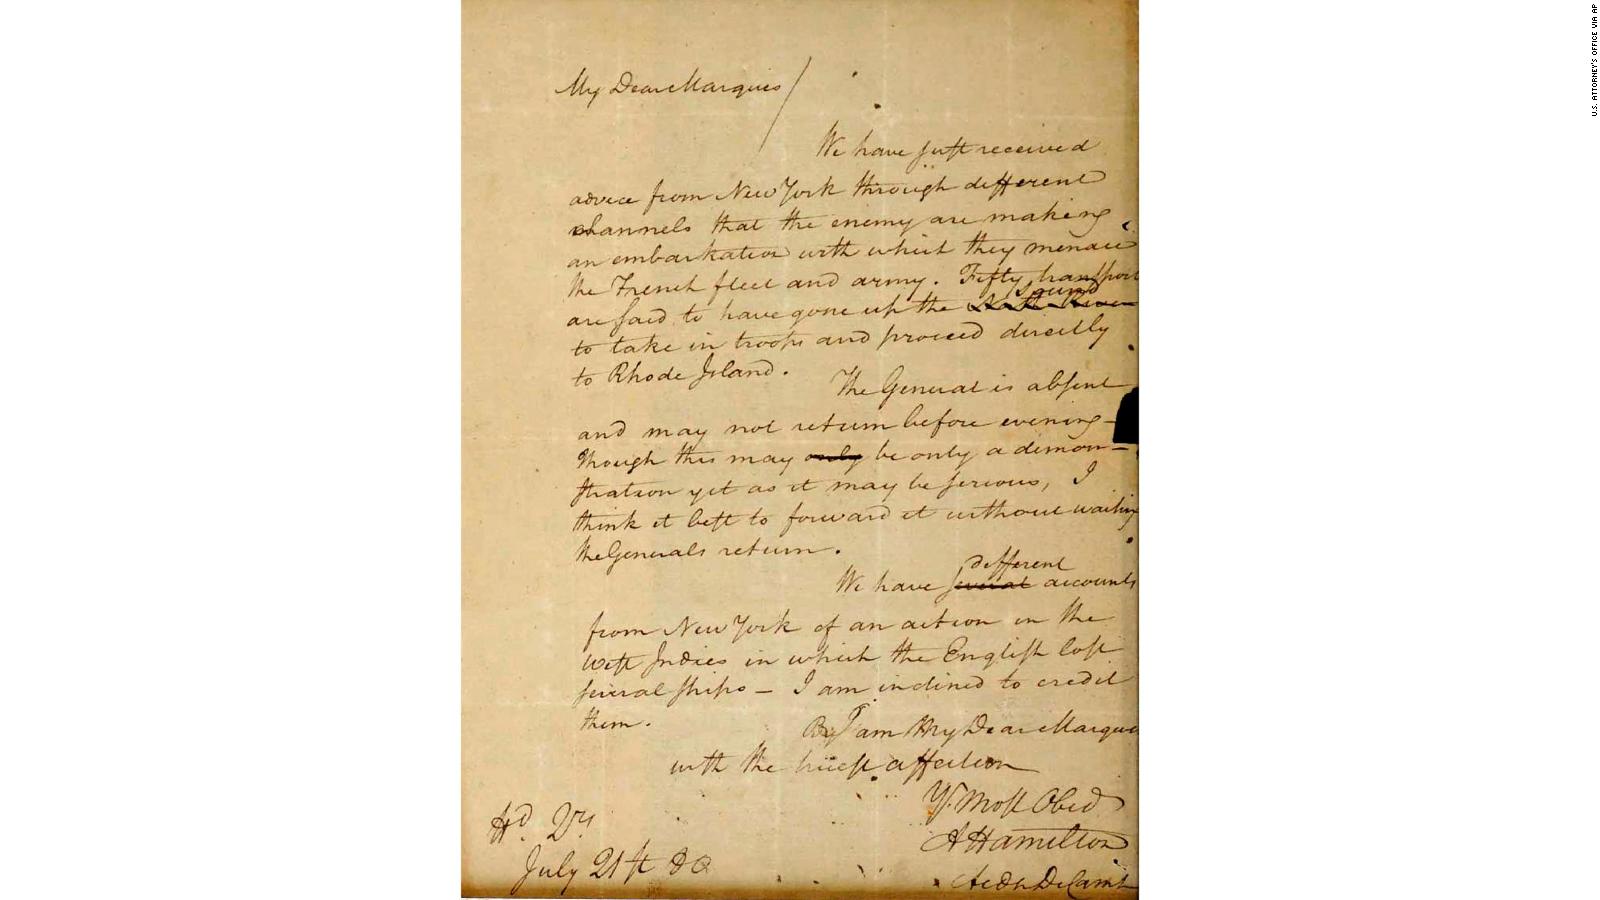 My Dear Marquis
We have just received
advice from New York through different
channels that the enemy are making
an embarkation with which they menace
the French fleet and army. Fifty transport
Sound
are said to have gone up the North River
to take in troops and proceed directly
to Rhode Island.
The General is absent
and may not return before evening—
Though this may only be only a demon—
stration yet as it may be serious, I
think it best to forward it without waiting
the Generals return.
different
We have several accounts
from New York of an action in the
West Indies in which the English lost
several ships — I am inclined to credit
them.
I am My Dear Marquis
with the truest affection
Yr. Most Obed
A Hamilton
Aide De Camp
Hd. Qrs
July 21st 80
U.S. ATTORNEY'S OFFICE VIA AP